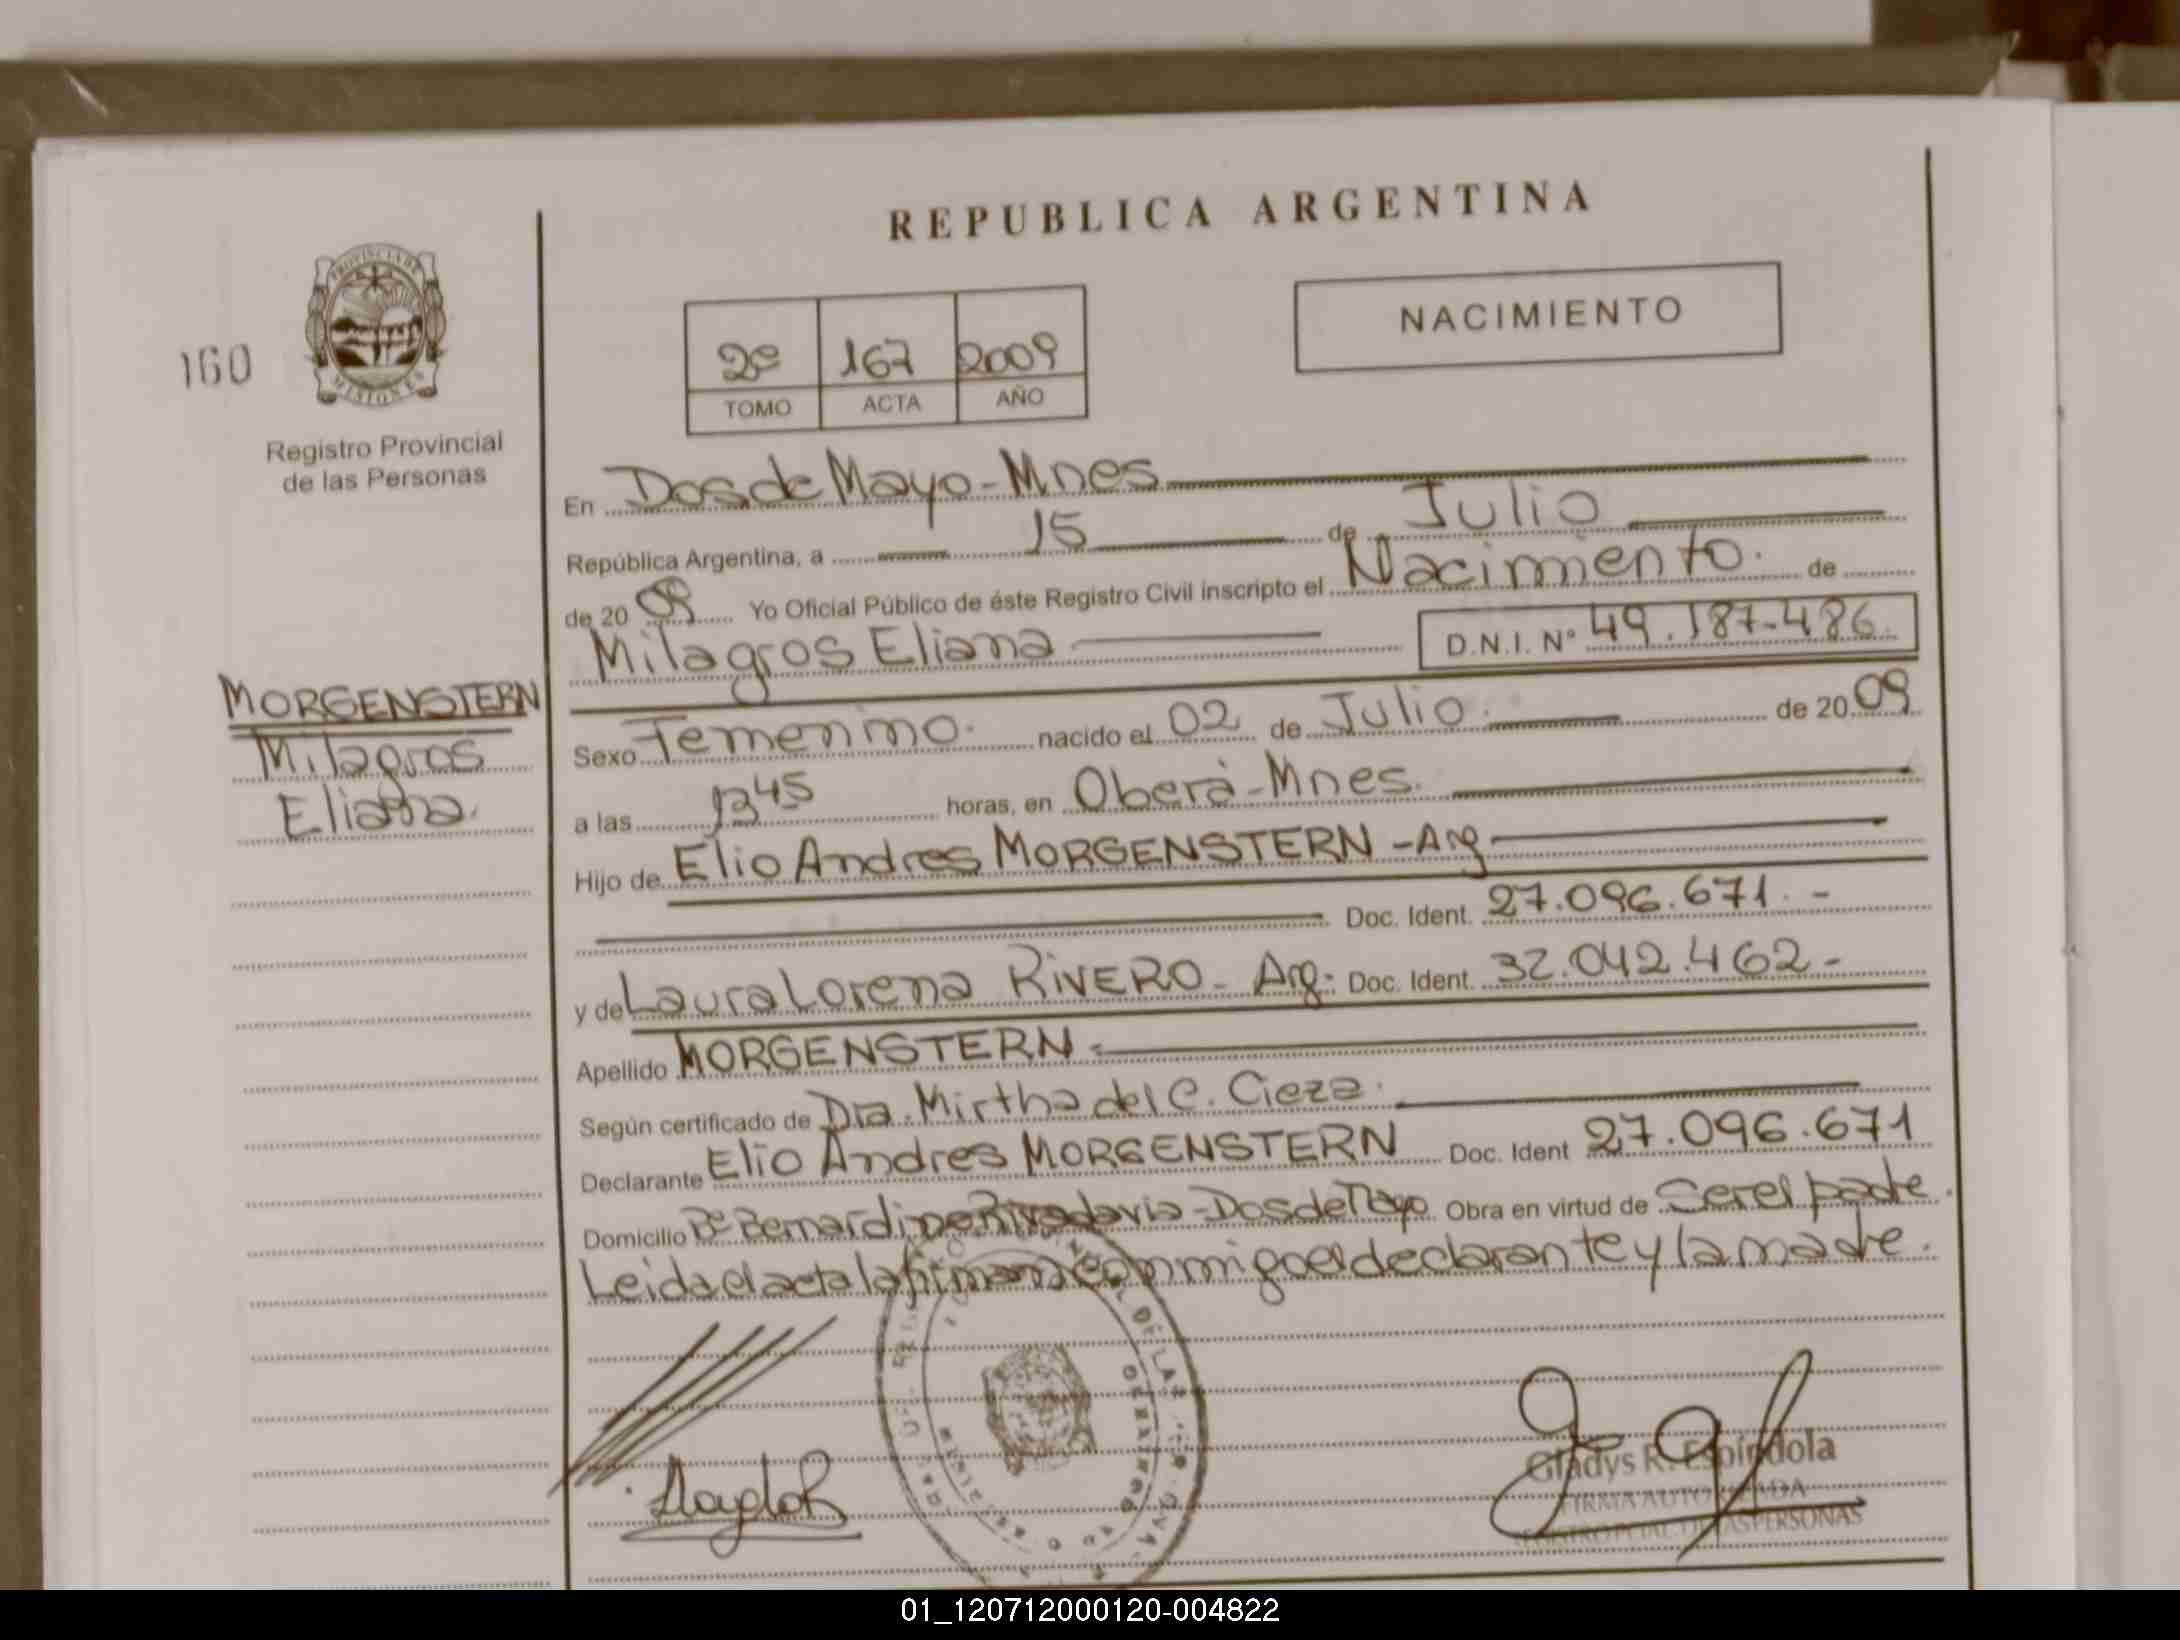 REPUBLICA ARGENTINA
NACIMIENTO
160
PROVINCIA DE
MISIONES
Registro Provincial
de las Personas
2º 167 2009
TOMO ACTA AÑO
En Dos de Mayo - Mnes
República Argentina, a 15 de Julio
de 20 09 Yo Oficial Público de éste Registro Civil inscripto el Nacimiento. de
Milagros Eliana D.N.I. Nº 49.187.486.
MORGENSTERN
Milagros
Eliana.
Sexo Femenino. nacido el 02 de Julio. de 20 09
a las 13 45 horas, en Oberá - Mnes.
Hijo de Elio Andres MORGENSTERN - Arg
Doc. Ident. 27.096.671. -
y de Laura Lorena RIVERO - Arg - Doc. Ident. 32.042.462 -
Apellido MORGENSTERN -
Según certificado de Dra. Mirtha del C. Cieza.
Declarante Elio Andres MORGENSTERN Doc. Ident 27.096.671
Domicilio Bº Bernardino Rivadavia - Dos de Mayo Obra en virtud de Ser el padre.
Leida el acta la firman conmigo el declarante y la madre.
Gladys R. Espíndola
FIRMA AUTORIZADA
01_120712000120-004822